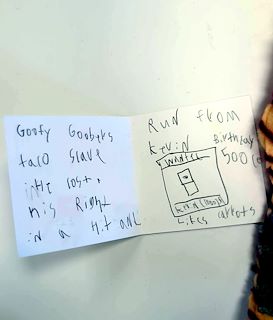 Goofy Goobers
taco slave
lost,
his Right
in a Hit
RUN from
Kevin
Birthday
500
WANTED
Likes carrots